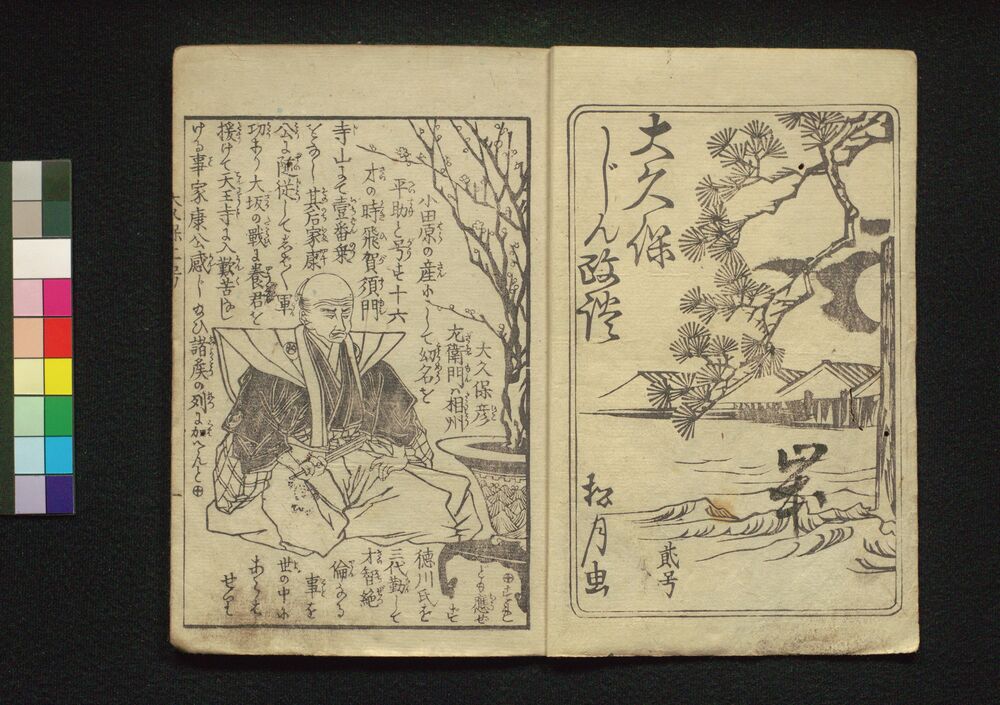 大久保
しじん政談
松月虫
貳号
大久保彦
左衛門ハ相州
小田原の産にして幼名を
平助と号す十六
才の時飛賀須門
寺山にて壹番乗
をなし其后家康
公に随従してしば〱軍
功あり大坂の戦に養君を
援けて天王寺に入歎苦
ける事家康公感じ給ひ諸矦の列に加へんと㊉
㊉すれ
ども應ぜ
ず
徳川氏を
三代勤して
才智絶
倫なる
事を
世の中に
あらは
せり